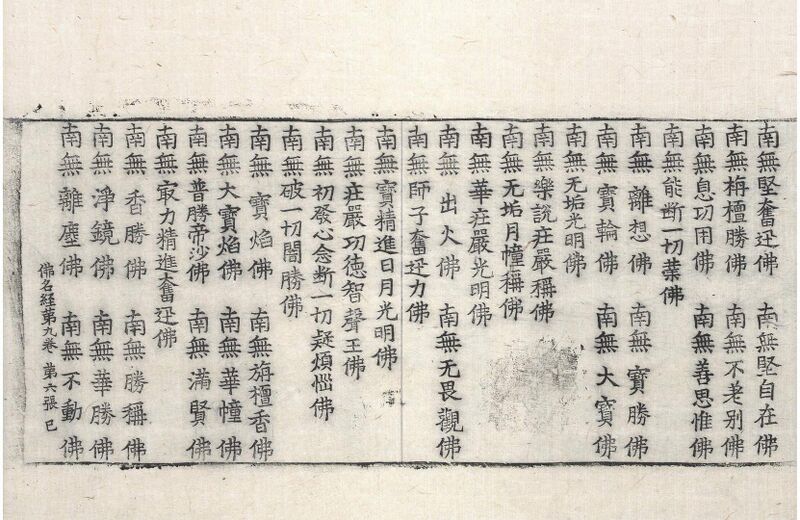 南無堅奮迅佛 南無堅自在佛
南無栴檀勝佛 南無不老別佛
南無息功用佛 南無善思惟佛
南無能断一切業佛
南無離想佛 南無寶勝佛
南無寶輪佛 南無大寶佛
南無无垢光明佛
南無樂說疘嚴稱佛
南無无垢月幢稱佛
南無華疘嚴光明佛
南無出火佛 南無无畏觀佛
南無師子奮迅力佛
南無寶精進日月光明佛
南無疘嚴功徳智聲王佛
南無初發心念断一切疑煩惱佛
南無破一切闇勝佛
南無寶焰佛 南無旃檀香佛
南無大寶焰佛 南無華幢佛
南無普勝帝沙佛 南無滿賢佛
南無冣力精進奮迅佛
南無香勝佛 南無勝稱佛
南無淨鏡佛 南無華勝佛
南無離塵佛 南無不動佛
佛名経第九卷 第六張 已